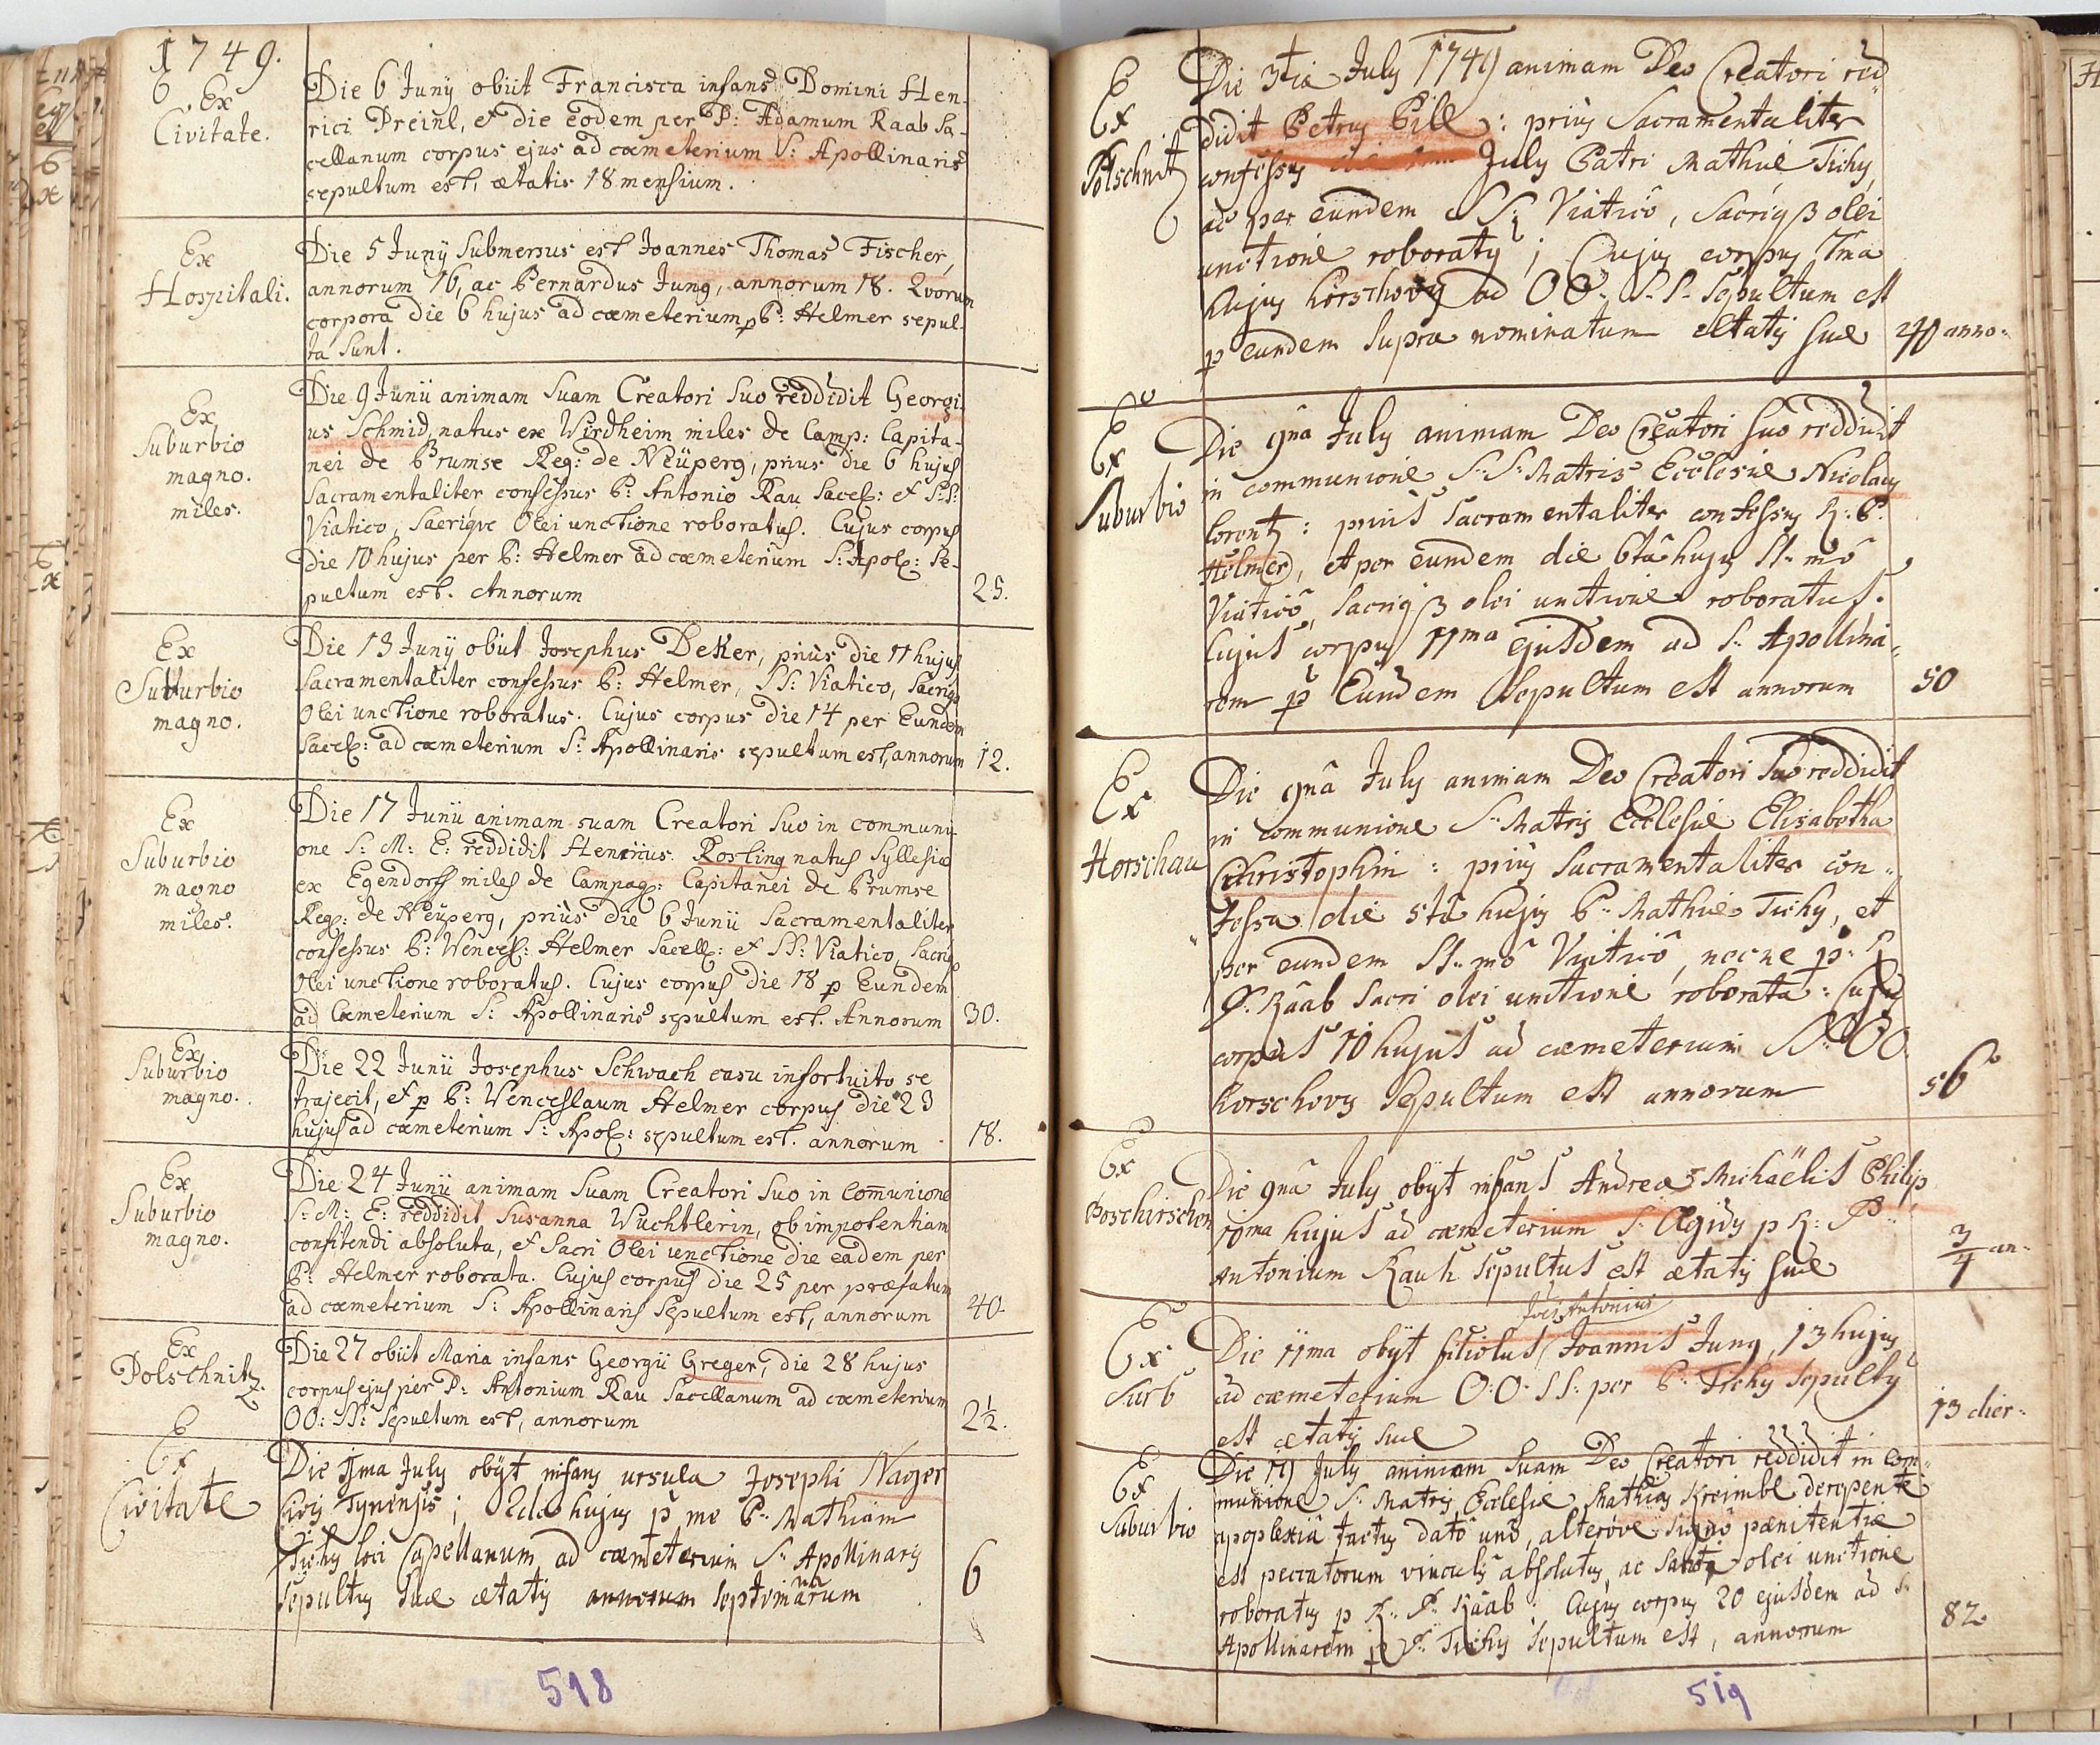 1749.
Ex
Civitate.
Die 6 Juny obiit Francisca infans Domini Hen-
rici Dreinl, et die eodem per P: Adamum Raab Sa-
cellanum corpus ejus ad cœmeterium S: Apollinaris
sepultum est, ætatis 18 mensium.
Ex
Hospitali.
Die 5 Juny Submersus est Joannes Thomas Fischer,
annorum 16, ac Bernardus Jung, annorum 18. Quorum
corpora die 6 hujus ad cœmeterium p P: Helmer sepul-
ta sunt.
Ex
Suburbio
magno.
miles.
Die 9 Junii animam Suam Creatori Suo reddidit Georgi-
us Schmid, natus ex Wirdheim miles de Camp: Capita-
nei de Brumse Reg: de Neüperg, prius die 6 hujus
Sacramentaliter confessus P: Antonio Rau Sacel: et S:S:
Viatico, Sacrique Olei unctione roboratus. Cujus corpus
die 10 hujus per P: Helmer ad cœmeterium S: Apol: Se-
pultum est. Annorum
25.
Ex
Suburbio
magno.
Die 13 Juny obiit Josephus Deker, priùs die 11 hujus
Sacramentaliter confessus P: Helmer, SS: Viatico, Sacriq
Olei unctione roboratus. Cujus corpus die 14 per Eundem
Sacel: ad cœmeterium S: Apollinaris sepultum est, annorum
12.
Ex
Suburbio
magno
miles.
Die 17 Junii animam suam Creatori Suo in communi-
one S: M: E: reddidit Henricus Rosling natus Syllesia
ex Egendorff miles de Campag: Capitanei de Brumse
Reg: de Neüperg, priùs die 6 Junii Sacramentaliter
confessus P: Wencesl: Helmer Sacell: et SS: Viatico, Sacriq
Olei unctione roboratus. Cujus corpus die 18 p Eundem
ad Cœmeterium S: Apollinaris sepultum est. Annorum
30.
Ex
Suburbio
magno.
Die 22 Junii Josephus Schwach casu infortuito se
trajecit, et p P: Wenceslaum Helmer corpus die 23
hujus ad cœmeterium S: Apol: sepultum est. annorum
18.
Ex
Suburbio
magno.
Die 24 Junii animam Suam Creatori Suo in Com̄unione
S: M: E: reddidit Susanna Wuchtlerin, ob impotentiam
confitendi absoluta, et Sacri Olei unctione die eadem per
P: Helmer roborata. Cujus corpus die 25 per præfatum
ad cœmeterium S: Apollinaris Sepultum est, annorum
40.
Ex
Polschnitz.
Die 27 obiit Maria infans Georgii Greger, die 28 hujus
corpus ejus per P: Antonium Rau Sacellanum ad cœmeterium
OO: SS: Sepultum est, annorum
2½.
Ex
Civitate
Die 1ma July obÿt infans ursula Josephi Nager
Civis Tynensis; 2da hujus p me P: Mathiam
Tichy loci Capellanum ad cœmeterium S: Apollinaris
Sepultus Suæ ætatis annorum Septimanarum
6
518
Ex
Polschnitz
Die 3tia July 1749 animam Deo Creatori red-
didit Petrus Pill: priùs Sacramentaliter
confessus July Patri Mathiæ Tichy,
ac per eundem SS: Viaticô, Sacriqβ olei
unctione roboratus; Cujus corpus 7ma
hujus horschoviæ ad OO: S:S: Sepultum est
p eundem Supra nominatum Ætatis Suæ
40 anno:
Ex
Suburbio
Die 9nâ July animam Deo Creatori Suo reddidit
in communione S:S: Matris Ecclesiæ Nicolaus
Lorentz: priùs Sacramentaliter confessus R: P:
Helmer, et per eundem die 6tâ hujus SS:mô
Viaticô, Sacriqβ olei unctione roboratus.
Cujus corpus 11ma ejusdem ad S: Apollina-
rem p Eundem Sepultum est annorum
50
Ex
Horschau
Die 9nâ July animam Deo Creatori Suo reddidit
in communione S: Matris Ecclesiæ Elisabetha
Christophin: priùs Sacramentaliter con-
fessa die 5tâ hujus P: Mathiæ Tichy, et
per eundem SS:mô Viaticô, necne p: R
P: Râab Sacri olei unctione roborata: Cujus
corpus 10 hujus ad cœmeterium SS: OO:
horschovy Sepultum est annorum
56
Ex
Poschirschen
Die 9nâ July obÿt infans Andreas Michaëlis Philip
10ma hujus ad cœmeterium S: Ægidy p R: P:
Antonium Rauh Sepultus est ætatis Suæ
3/4 an:
Ex
Surb
Jois Antonius
Die 11ma obÿt filiolus Joannis Jung, 13 hujus
ad cœmeterium O:O: SS: per P: Tichy Sepultus
est ætatis Suæ
13 dier:
Ex
Suburbio
Die 19 July animam Suam Deo Creatori reddidit in com-
munione S: Matris Ecclesiæ Mathias Kreimbl derepente
apoplexiâ tactus datô unô, alterôve Signô pœnitentiæ
est peccatorum vinculis absolutus, ac Sancti olei unctione
roboratus p R: P: Râab: Cujus corpus 20 ejusdem ad S:
Apollinarem p P: Tichy Sepultum est, annorum
82.
519